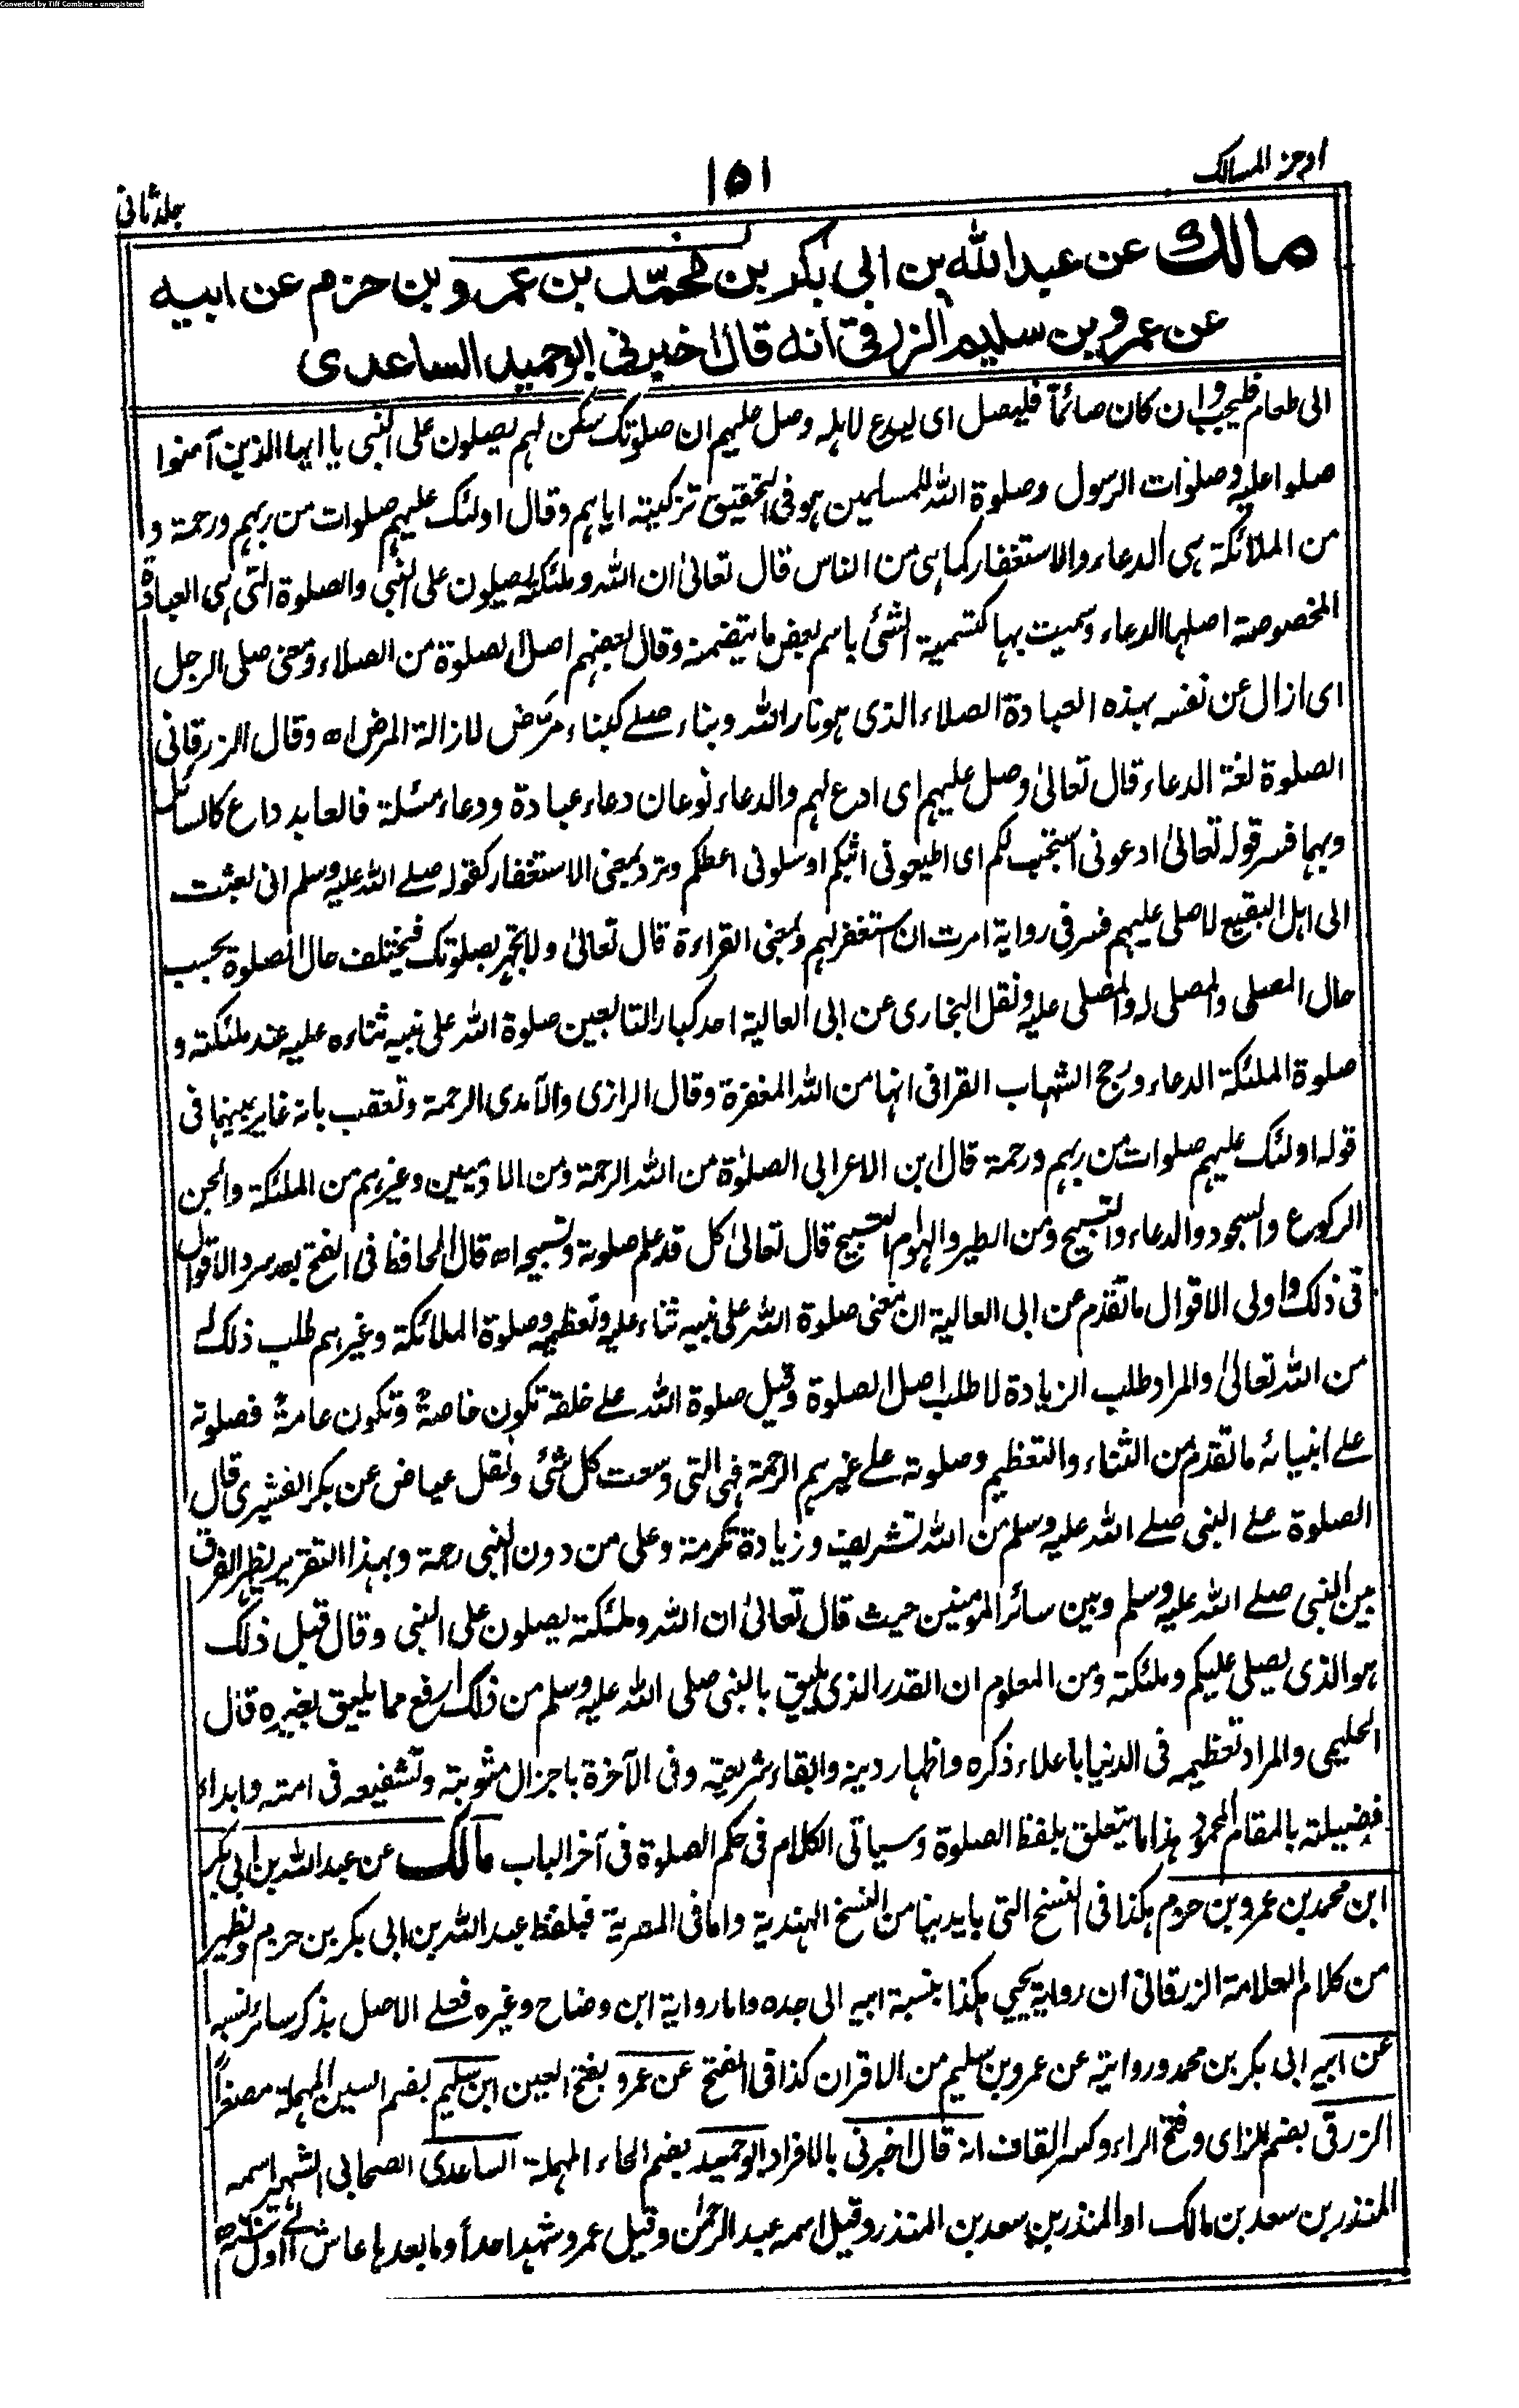 Converted by Tiff Combine - unregistered
اوجز المسالك
١٥١
جلد ثانی
مالك عن عبد الله بن ابى بكر بن محمد بن عمرو بن حزم عن ابيه
عن عمرو بن سليم الزرقى انه قال اخبرنى ابو حميد الساعدى
الى طعام فليجب وان كان صائماً فليصل اى ليدع لاہلہ وصل عليہم ان صلوتك سكن لہم يصلون على النبى يا ايہا الذين آمنوا
صلوا عليہ وصلوات الرسول وصلوة اللہ للمسلمين ہو فى التحقيق تزكيتہ اياہم وقال اولئك عليہم صلوات من ربہم ورحمة و
من الملائكة ہى الدعاء والاستغفار كما ہى من الناس قال تعالىٰ ان اللہ وملئكتہ يصلون على النبى والصلوة التى ہى العبادة
المخصوصة اصلہا الدعاء وسميت بہا كتسمية الشئ باسم بعض ما يتضمنہ وقال بعضہم اصل الصلوة من الصلاء ومعنى صلى الرجل
اى ازال عن نفسہ بہذہ العبادة الصلاء الذى ہو نار اللہ وبناء صلے كبناء مرّض لازالة المرض اھ وقال الزرقانى
الصلوة لغة الدعاء قال تعالىٰ وصل عليہم اى ادع لہم والدعاء نوعان دعاء عبادة ودعاء مسئلة فالعابد داع كالسائل
وبہما فسر قولہ تعالىٰ ادعونى استجب لكم اى اطيعونى اثبكم او سلونى اعطكم وترد بمعنى الاستغفار كقولہ صلے اللہ عليہ وسلم انى بعثت
الى اہل البقيع لاصلى عليہم فسر فى رواية امرت ان استغفر لہم وبمعنى القراءة قال تعالىٰ ولا تجہر بصلوتك فيختلف حال الصلوة بحسب
حال المصلى والمصلى لہ والمصلى عليہ ونقل البخارى عن ابى العالية احد كبار التابعين صلوة اللہ على نبيہ ثناءہ عليہ عند ملئكتہ و
صلوة الملئكة الدعاء ورجح الشہاب القرافى انہا من اللہ المغفرة وقال الرازى والآمدى الرحمة وتعقب بانہ غاير بينہما فى
قولہ اولئك عليہم صلوات من ربہم ورحمة قال ابن الاعرابى الصلوٰة من اللہ الرحمة ومن الآدميين وغيرہم من الملئكة والجن
الركوع والسجود والدعاء والتسبيح ومن الطير والہوام التسبيح قال تعالىٰ كل قد علم صلوتہ وتسبيحہ اھ قال الحافظ فى الفتح بعد سرد الاقوال
فى ذلك واولى الاقوال ما تقدم عن ابى العالية ان معنى صلوة اللہ على نبيہ ثناء عليہ وتعظيمہ وصلوة الملائكة وغيرہم طلب ذلك لہ
من اللہ تعالىٰ والمراد طلب الزيادة لا طلب اصل الصلوة وقيل صلوة اللہ علے خلقہ تكون خاصةً وتكون عامةً فصلوتہ
علے انبيائہ ما تقدم من الثناء والتعظيم وصلوتہ علے غيرہم الرحمة فہى التى وسعت كل شئ ونقل عياض عن بكر القشيرى قال
الصلوة علے النبى صلے اللہ عليہ وسلم من اللہ تشريف وزيادة تكرمة وعلى من دون النبى رحمة وبہذا التقرير يظہر الفرق
بين النبى صلے اللہ عليہ وسلم وبين سائر المومنين حيث قال تعالىٰ ان اللہ وملئكتہ يصلون على النبى وقال قبل ذلك
ہو الذى يصلى عليكم وملئكتہ ومن المعلوم ان القدر الذى يليق بالنبى صلى اللہ عليہ وسلم من ذلك ارفع مما يليق بغيرہ قال
الحليمى والمراد تعظيمہ فى الدنيا باعلاء ذكرہ واظہار دينہ وابقاء شريعتہ وفى الآخرة باجزال مثوبتہ وتشفيعہ فى امتہ وابداء
فضيلتہ بالمقام المحمود ہذا ما يتعلق بلفظ الصلوة وسياتى الكلام فى حكم الصلوة فى آخر الباب مالك عن عبد اللہ بن ابى بكر
ابن محمد بن عمرو بن حزم ہكذا فى النسخ التى بايدينا من النسخ الہندية واما فى المصرية فبلفظ عبد اللہ بن ابى بكر بن حزم ويظہر
من كلام العلامة الزرقانى ان رواية يحيىٰ ہكذا بنسبة ابيہ الى جدہ واما رواية ابن وضاح وغيرہ فعلے الاصل بذكر سائر نسبہ
عن ابيہ ابى بكر بن محمد وروايتہ عن عمرو بن سليم من الاقران كذا فى الفتح عن عمرو بفتح العين ابن سليم بضم السين المہملة مصغراً
الزرقى بضم الزاى وفتح الراء وكسر القاف انہ قال اخبرنى بالافراد ابو حميد بضم الحاء المہملة الساعدى الصحابى الشہير اسمہ
المنذر بن سعد بن مالك او المنذر بن سعد بن المنذر وقيل اسمہ عبد الرحمٰن وقيل عمرو شہد احداً وما بعدہا عاش الى اول